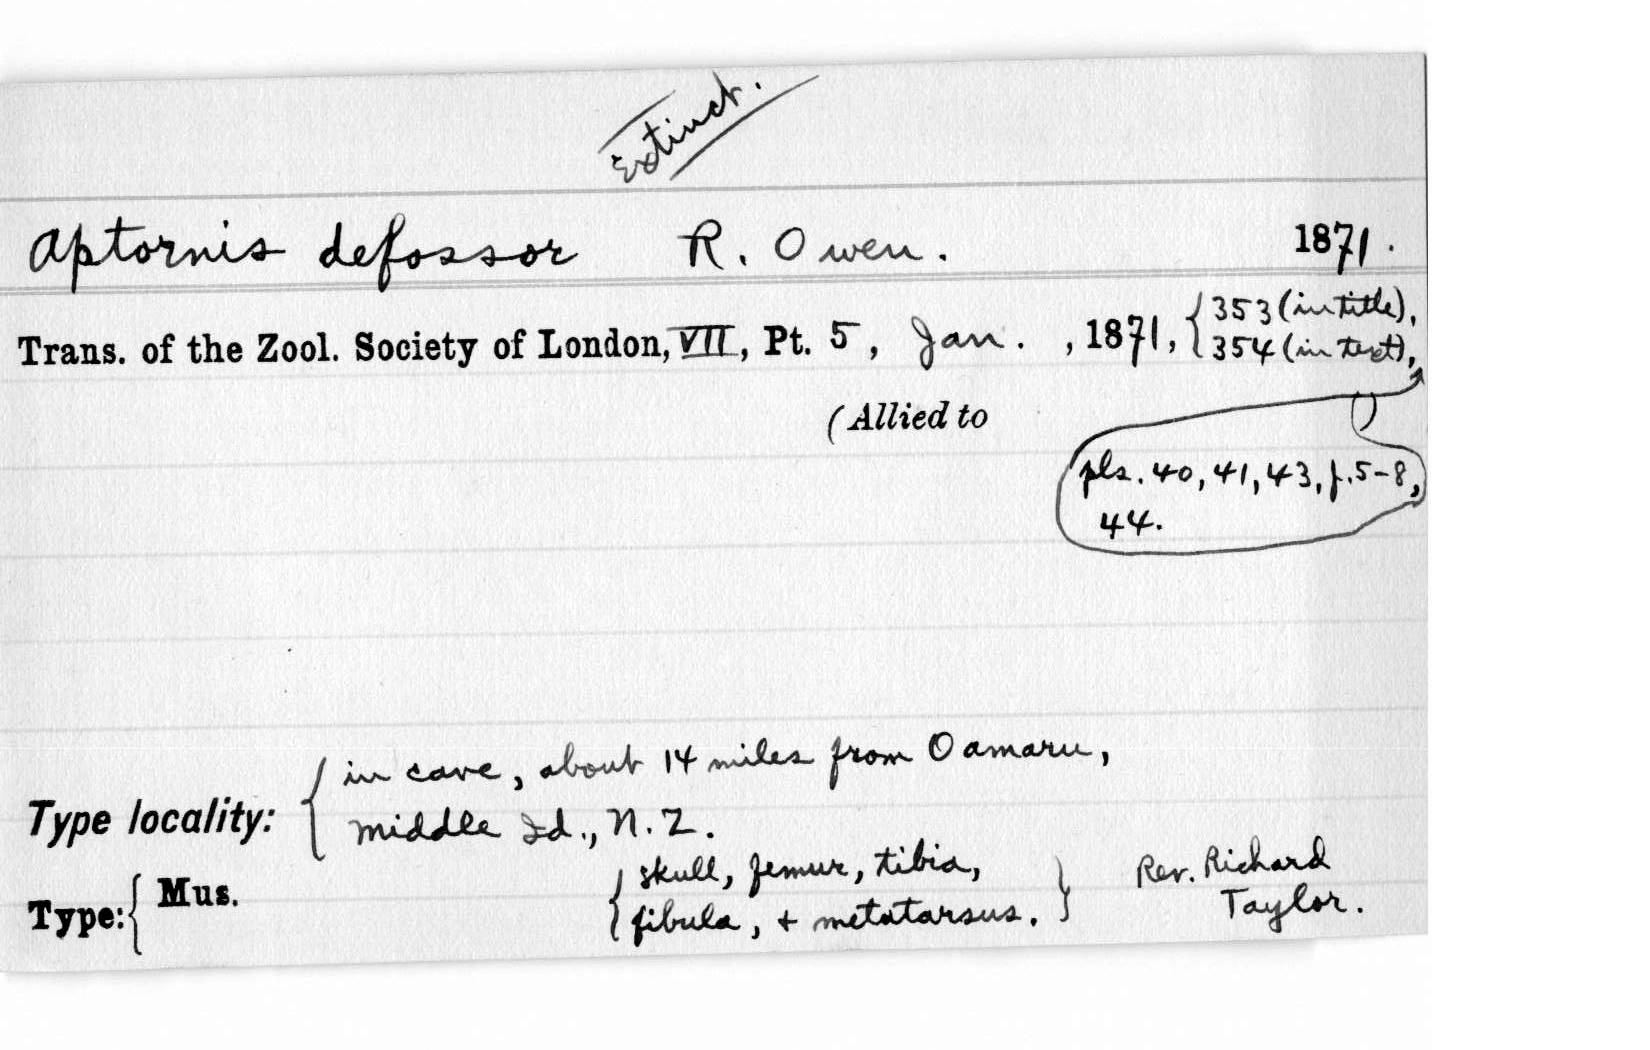 Extinct.
Aptornis defossor R. Owen. 1871.
Trans. of the Zool. Society of London, VII, Pt. 5, Jan. , 1871, { 353 (in title),
354 (in text),
(Allied to
pls. 40, 41, 43, f. 5-8,
44.
Type locality: { in cave, about 14 miles from Oamaru,
middle Id., N. Z.
Type: { Mus. { skull, femur, tibia, } Rev. Richard
fibula, + metatarsus. Taylor.